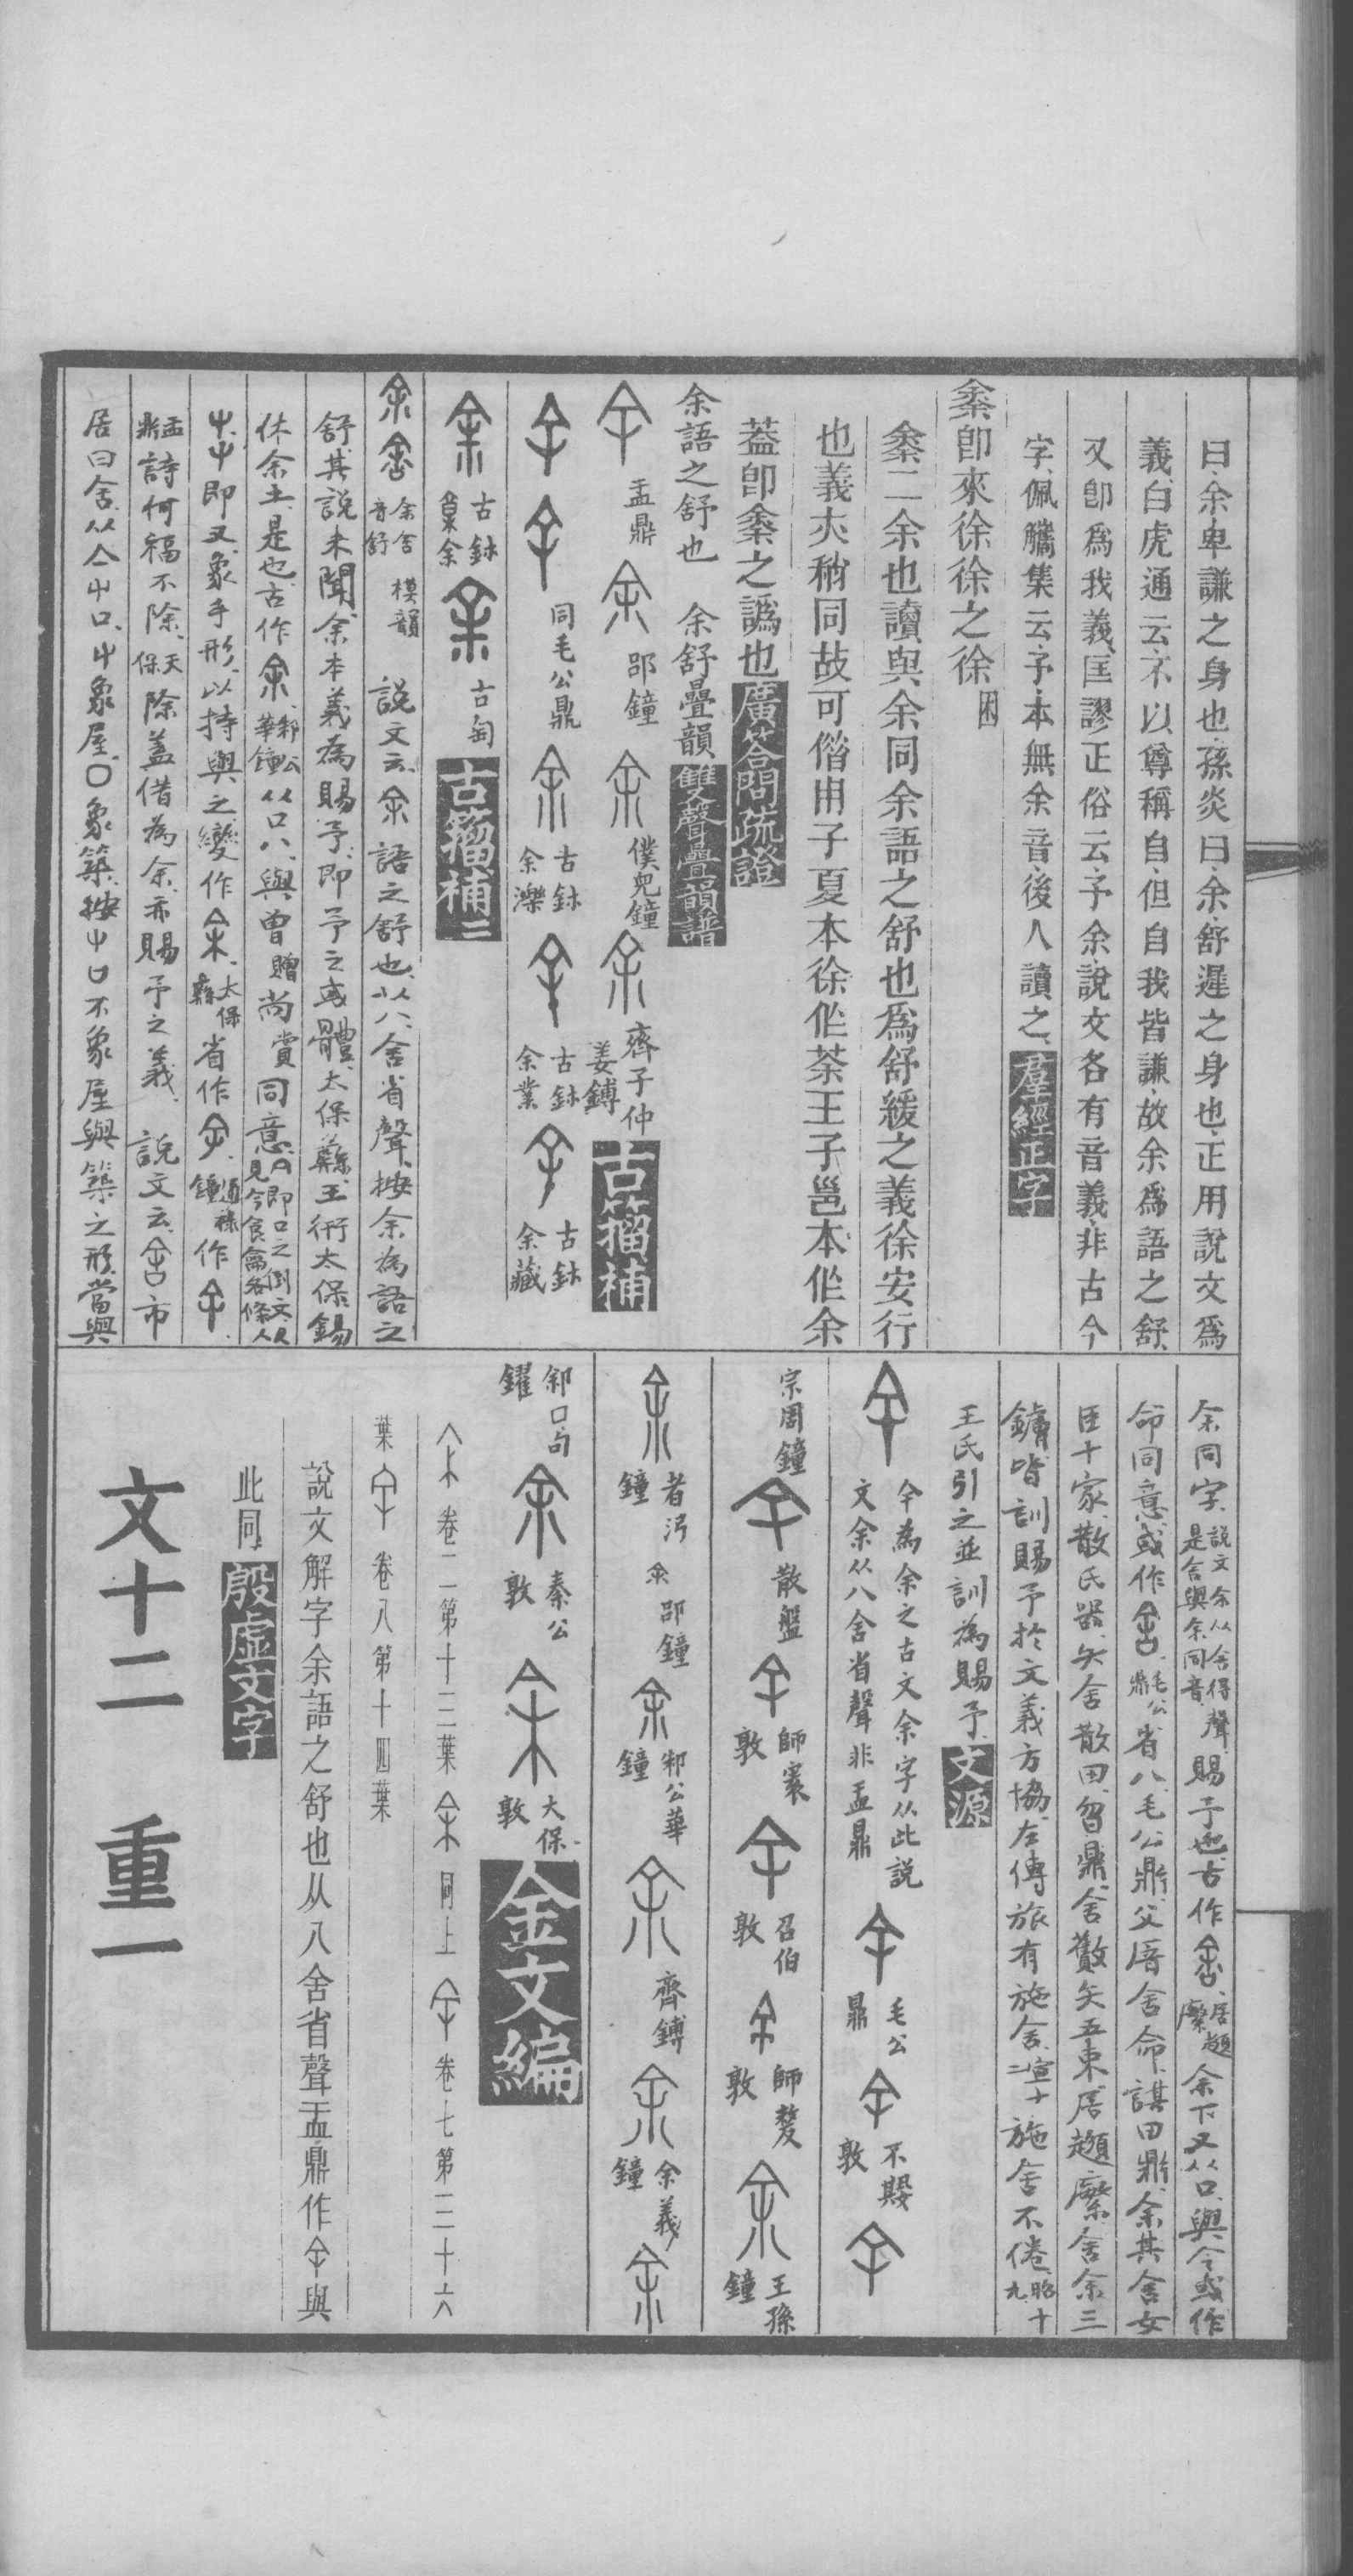 曰余卑謙之身也孫炎曰余舒遲之身也正用說文爲
義白虎通云不以尊稱自但自我皆謙故余爲語之舒
又卽爲我義匡謬正俗云予余說文各有音義非古今
字佩觿集云予本無余音後人讀之羣經正字
𠎳卽來徐徐之徐困
𠎳二余也讀與余同余語之舒也爲舒緩之義徐安行
也義夾稍同故可偕用子夏本徐作荼王子邕本作余
葢卽𠎳之譌也廣答問疏證
余語之舒也　余舒疊韻雙聲疊韻譜
盂鼎　邵鐘　僕兒鐘　齊子仲姜鎛　古籀補
同毛公鼎　古鉢余濼　古鉢余業　古鉢余藏
古鉢余　古匋　古籀補二
余舍音舒　模韻　說文云余語之舒也从八舍省聲按余為語之
舒其說未聞余本義為賜予即予之或體太保彝王衍太保錫
休余土是也古作　邾公華鐘　从口八與曾贈尚賞同意　即口之倒文見今食龠各條
即又象手形以持與之變作　太保彝　省作　鐘　作
盂鼎　詩何福不除天保　除蓋借為余亦賜予之義　說文云　市
居曰舍从亼屮口屮象屋口象築按屮口不象屋與築之形當與
余同字說文余从舍得聲是舍與余同音　賜予也古作　居趞　余下又从口與今或作
命同意或作　毛公鼎　省八毛公鼎父厝舍命諆田鼎余其舍女
臣十家散氏器矢舍散田曶鼎舍矢五束居趞舍余三
鏞皆訓賜予於文義方協左傳旅有施舍宣十二　施舍不倦昭十九
王氏引之並訓為賜予文源
今為余之古文余字从此說文余从八舍省聲非盂鼎　毛公鼎　不𡢁敦
宗周鐘　散盤　師寰敦　召伯敦　師嫠敦　王孫鐘
者汈鐘　邵鐘　邾公華鐘　齊鎛　余義鐘
䣄口句鑃　秦公敦　大保敦　金文編
卷二第十三葉　同上　卷七第二十六
葉　卷八第十四葉
說文解字余語之舒也从八舍省聲盂鼎作　與
此同殷虛文字
文十二　重一